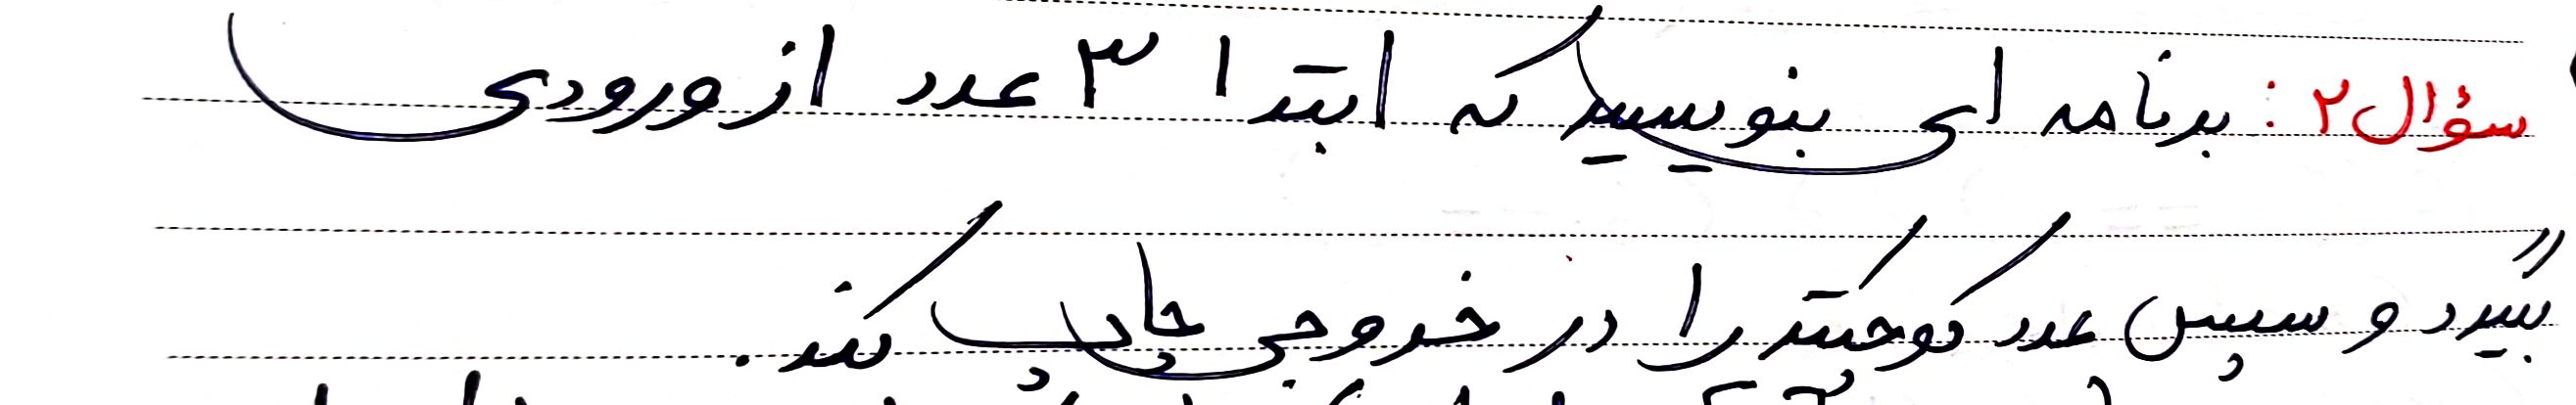 سؤال ۲ : برنامه ای بنویسید که ابتدا ۳ عدد از ورودی
بگیرد و سپس عدد کوچکتر را در خروجی چاپ کند.